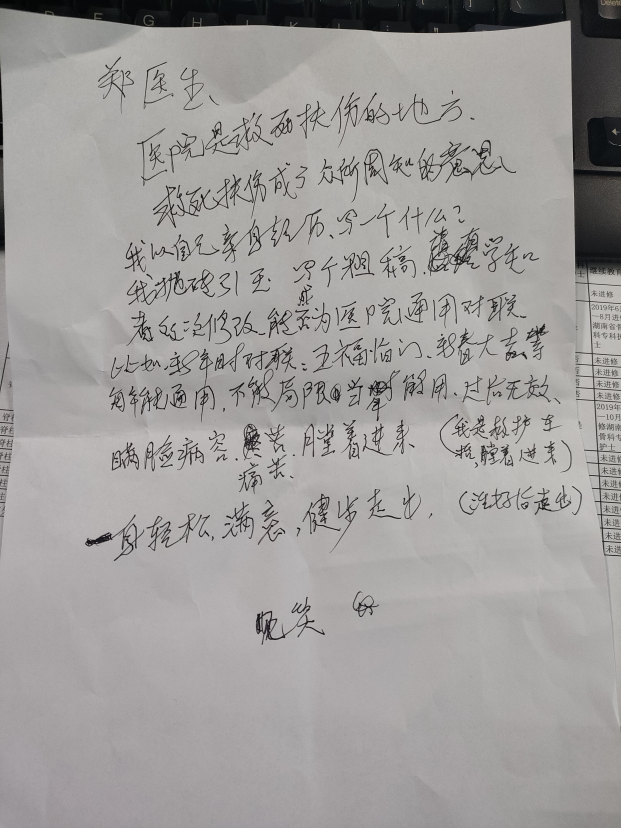 郑医生、
医院是救死扶伤的地方.
救死扶伤成了众所周知的意思、
我以自己亲身经历、写一个什么?
我抛砖引玉 写个粗稿, 请 学知
者 修改、能否成为医院通用对联
比如新年时对联:五福临门、新春大吉等
每年能通用, 不能局限 当时 能用. 过后无效、
满脸病容、痛苦、月瞠着进来 (我是救护车
痛苦、
接,瞠着进来)
一身轻松, 满意, 健步走出, (治好后走出)
见笑
Delete
继续教育
未进修
2019年6
—8月进
湖南省骨
科专科护
士
未进修
未进修
未进修
2019年
—10月
修湖南
骨科专
护士
未进修
未进修
未进修
未进修
未进修
未进
脊柱
脊柱
脊柱